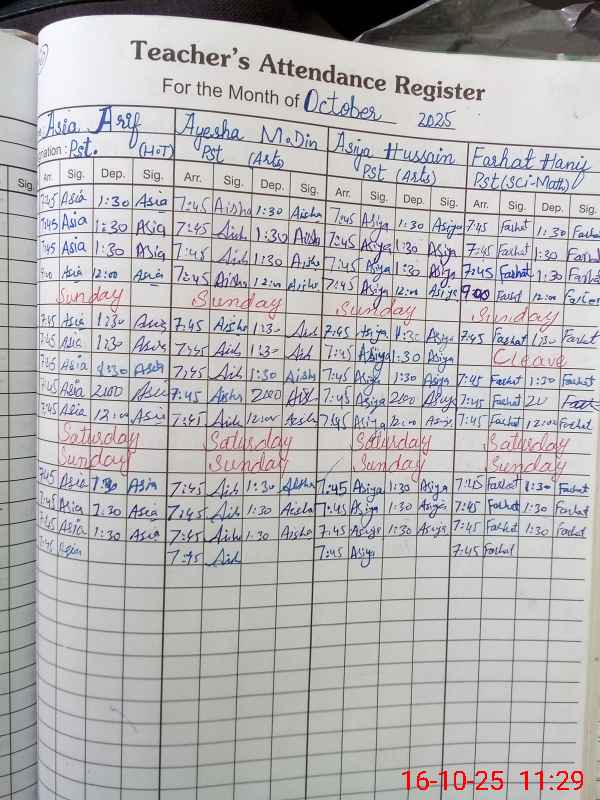 Teacher's Attendance Register
For the Month of October 2025
Asia Arif Ayesha M.Din Asiya Hussain Farhat Hanif
mation : Pst. (HoT) Pst (Arts) Pst (Arts) Pst (Sci-Math)
Arr. Sig. Dep. Sig. Arr. Sig. Dep. Sig. Arr. Sig. Dep. Sig. Arr. Sig. Dep. Sig.
7:45 Asia 1:30 Asia 7:45 Aisha 1:30 Aisha 7:45 Asiya 1:30 Asiya 7:45 Farhat 1:30 Farhat
7:45 Asia 1:30 Asia 7:45 Aish 1:30 Aisha 7:45 Asiya 1:30 Asiya 7:45 Farhat 1:30 Farhat
7:45 Asia 1:30 Asia 7:45 Aish 1:30 Aisha 7:45 Asiya 1:30 Asiya 7:45 Farhat 1:30 Farhat
Asia 12:00 Asia 7:45 Aisha 12:00 Aisha 7:45 Asiya 12:00 Asiya Farhat 12:00 Farhat
Sunday Sunday Sunday Sunday
7:45 Asia 1:30 Asia 7:45 Aisha 1:30 7:45 Asiya 1:30 Asiya 7:45 Farhat 1:30 Farhat
7:45 Asia 1:30 Asia 7:45 Aish 1:30 7:45 Asiya 1:30 Asiya Cleave
7:45 Asia 1:30 Asia 7:45 Aish 1:30 Aisha 7:45 Asiya 1:30 Asiya 7:45 Farhat 1:30 Farhat
7:45 Asia 2:00 Asia 7:45 Aisha 2:00 7:45 Asiya 2:00 Asiya 7:45 Farhat
7:45 Asia 12:00 Asia 7:45 Aish 12:00 Aisha 7:45 Asiya 12:00 Asiya 7:45 Farhat 12:00 Farhat
Saturday Saturday Saturday Saturday
Sunday Sunday Sunday Sunday
7:45 Asia 1:30 Asia 7:45 Aish 1:30 Aisha 7:45 Asiya 1:30 Asiya 7:45 Farhat 1:30 Farhat
7:45 Asia 1:30 Asia 7:45 Aish 1:30 Aisha 7:45 Asiya 1:30 Asiya 7:45 Farhat 1:30 Farhat
7:45 Asia 1:30 Asia 7:45 Aish 1:30 Aisha 7:45 Asiya 1:30 Asiya 7:45 Farhat 1:30 Farhat
7:45 Asia 7:45 Aish 7:45 Asiya 7:45 Farhat
16-10-25 11:29